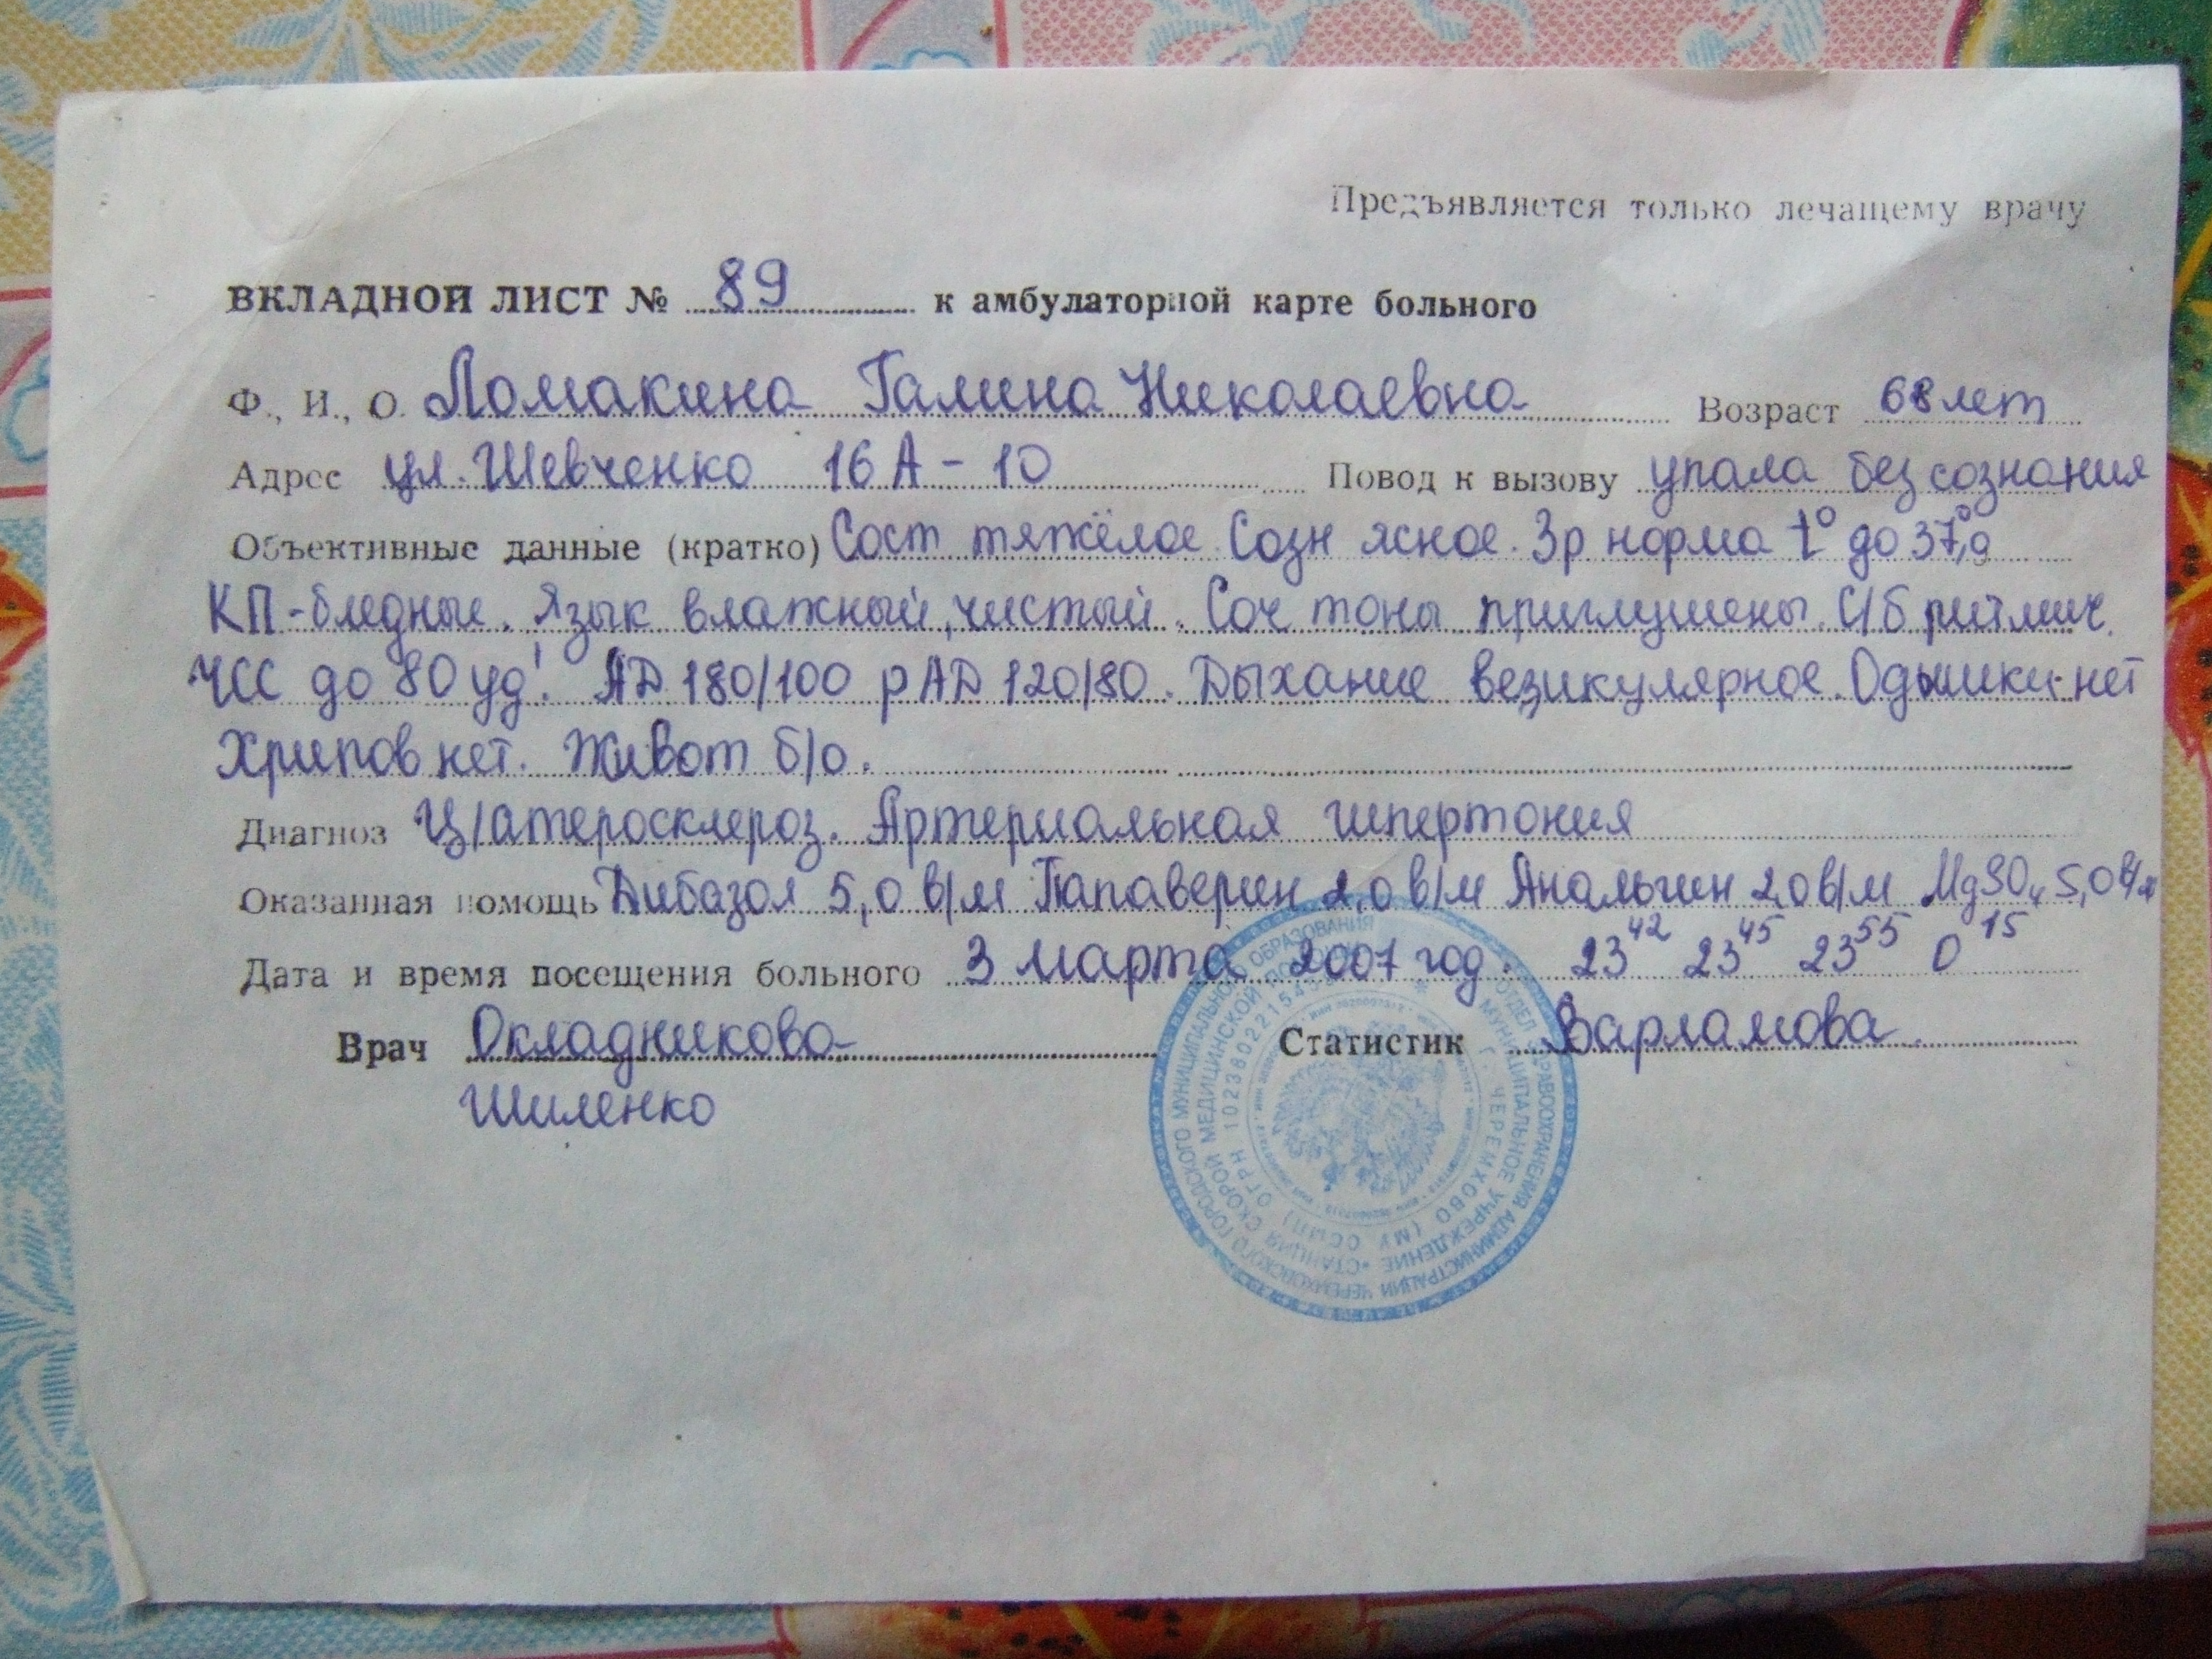 Предъявляется только лечащему врачу
ВКЛАДНОЙ ЛИСТ № 89 к амбулаторной карте больного
Ф., И., О. Ломакина Галина Николаевна Возраст 68 лет
Адрес ул. Шевченко 16 А - 10 Повод к вызову упала без сознания
Объективные данные (кратко) Сост тяжёлое. Созн ясное. Зр норма t° до 37,9°
КП - бледные. Язык влажный, чистый. Соч тоны приглушены. С/б ритмич.
ЧСС до 80 уд'. АД 180/100 рАД 120/80. Дыхание везикулярное. Одышки - нет
Хрипов нет. Живот б/о.
Диагноз Ц/атеросклероз. Артериальная гипертония
Оказанная помощь Дибазол 5,0 в/м Папаверин 2,0 в/м Анальгин 2,0 в/м MgSO₄ 5,0 в/м
Дата и время посещения больного 3 марта 2007 год. 23⁴² 23⁴⁵ 23⁵⁵ 0¹⁵
Врач Окладникова Статистик Варламова.
Шиленко
ОТДЕЛ ЗДРАВООХРАНЕНИЯ АДМИНИСТРАЦИИ ЧЕРЕМХОВСКОГО ГОРОДСКОГО МУНИЦИПАЛЬНОГО ОБРАЗОВАНИЯ
МУНИЦИПАЛЬНОЕ УЧРЕЖДЕНИЕ "СТАНЦИЯ СКОРОЙ МЕДИЦИНСКОЙ ПОМОЩИ
Г. ЧЕРЕМХОВО (МУ ССМП) ОГРН